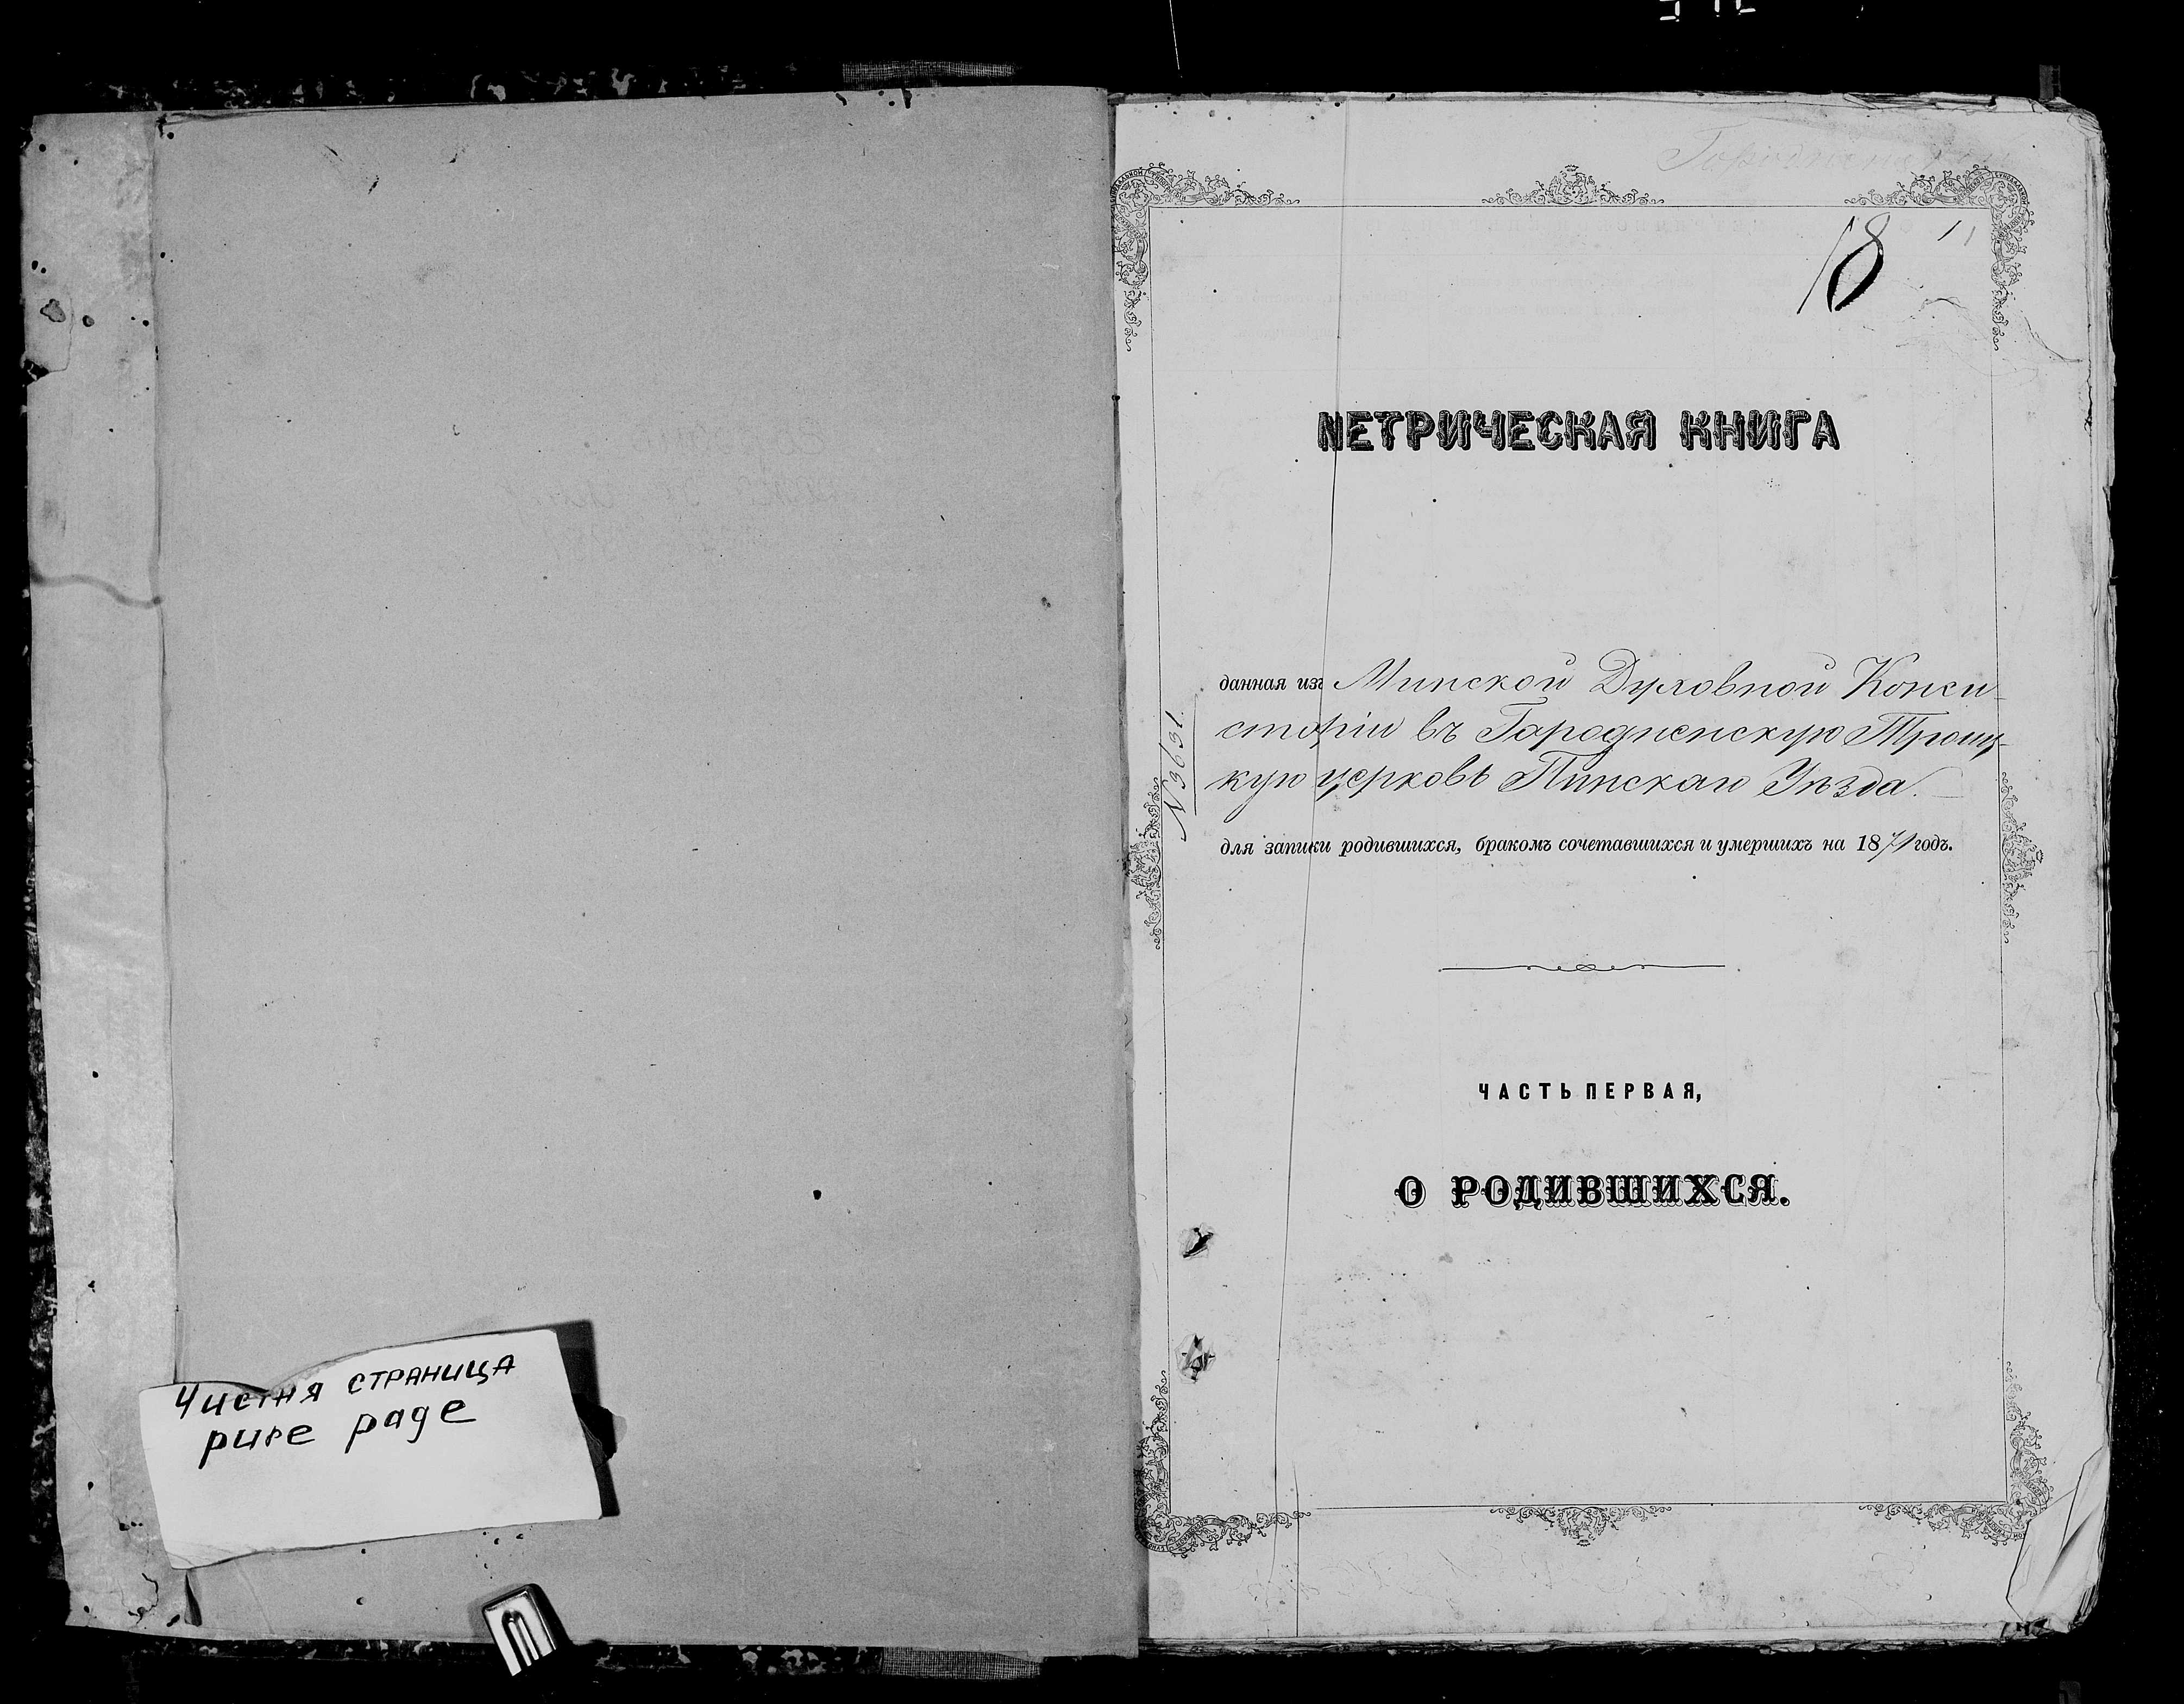 Чистая страница
pure page
18
МЕТРИЧЕСКАЯ КНИГА
данная изъ Минской Духовной Конси-
сторіи въ Городненскую Троиц-
кую церковь Пинскаго Уѣзда.
№ 3631.
для записи родившихся, бракомъ сочетавшихся и умершихъ на 1871 годъ.
ЧАСТЬ ПЕРВАЯ,
О РОДИВШИХСЯ.